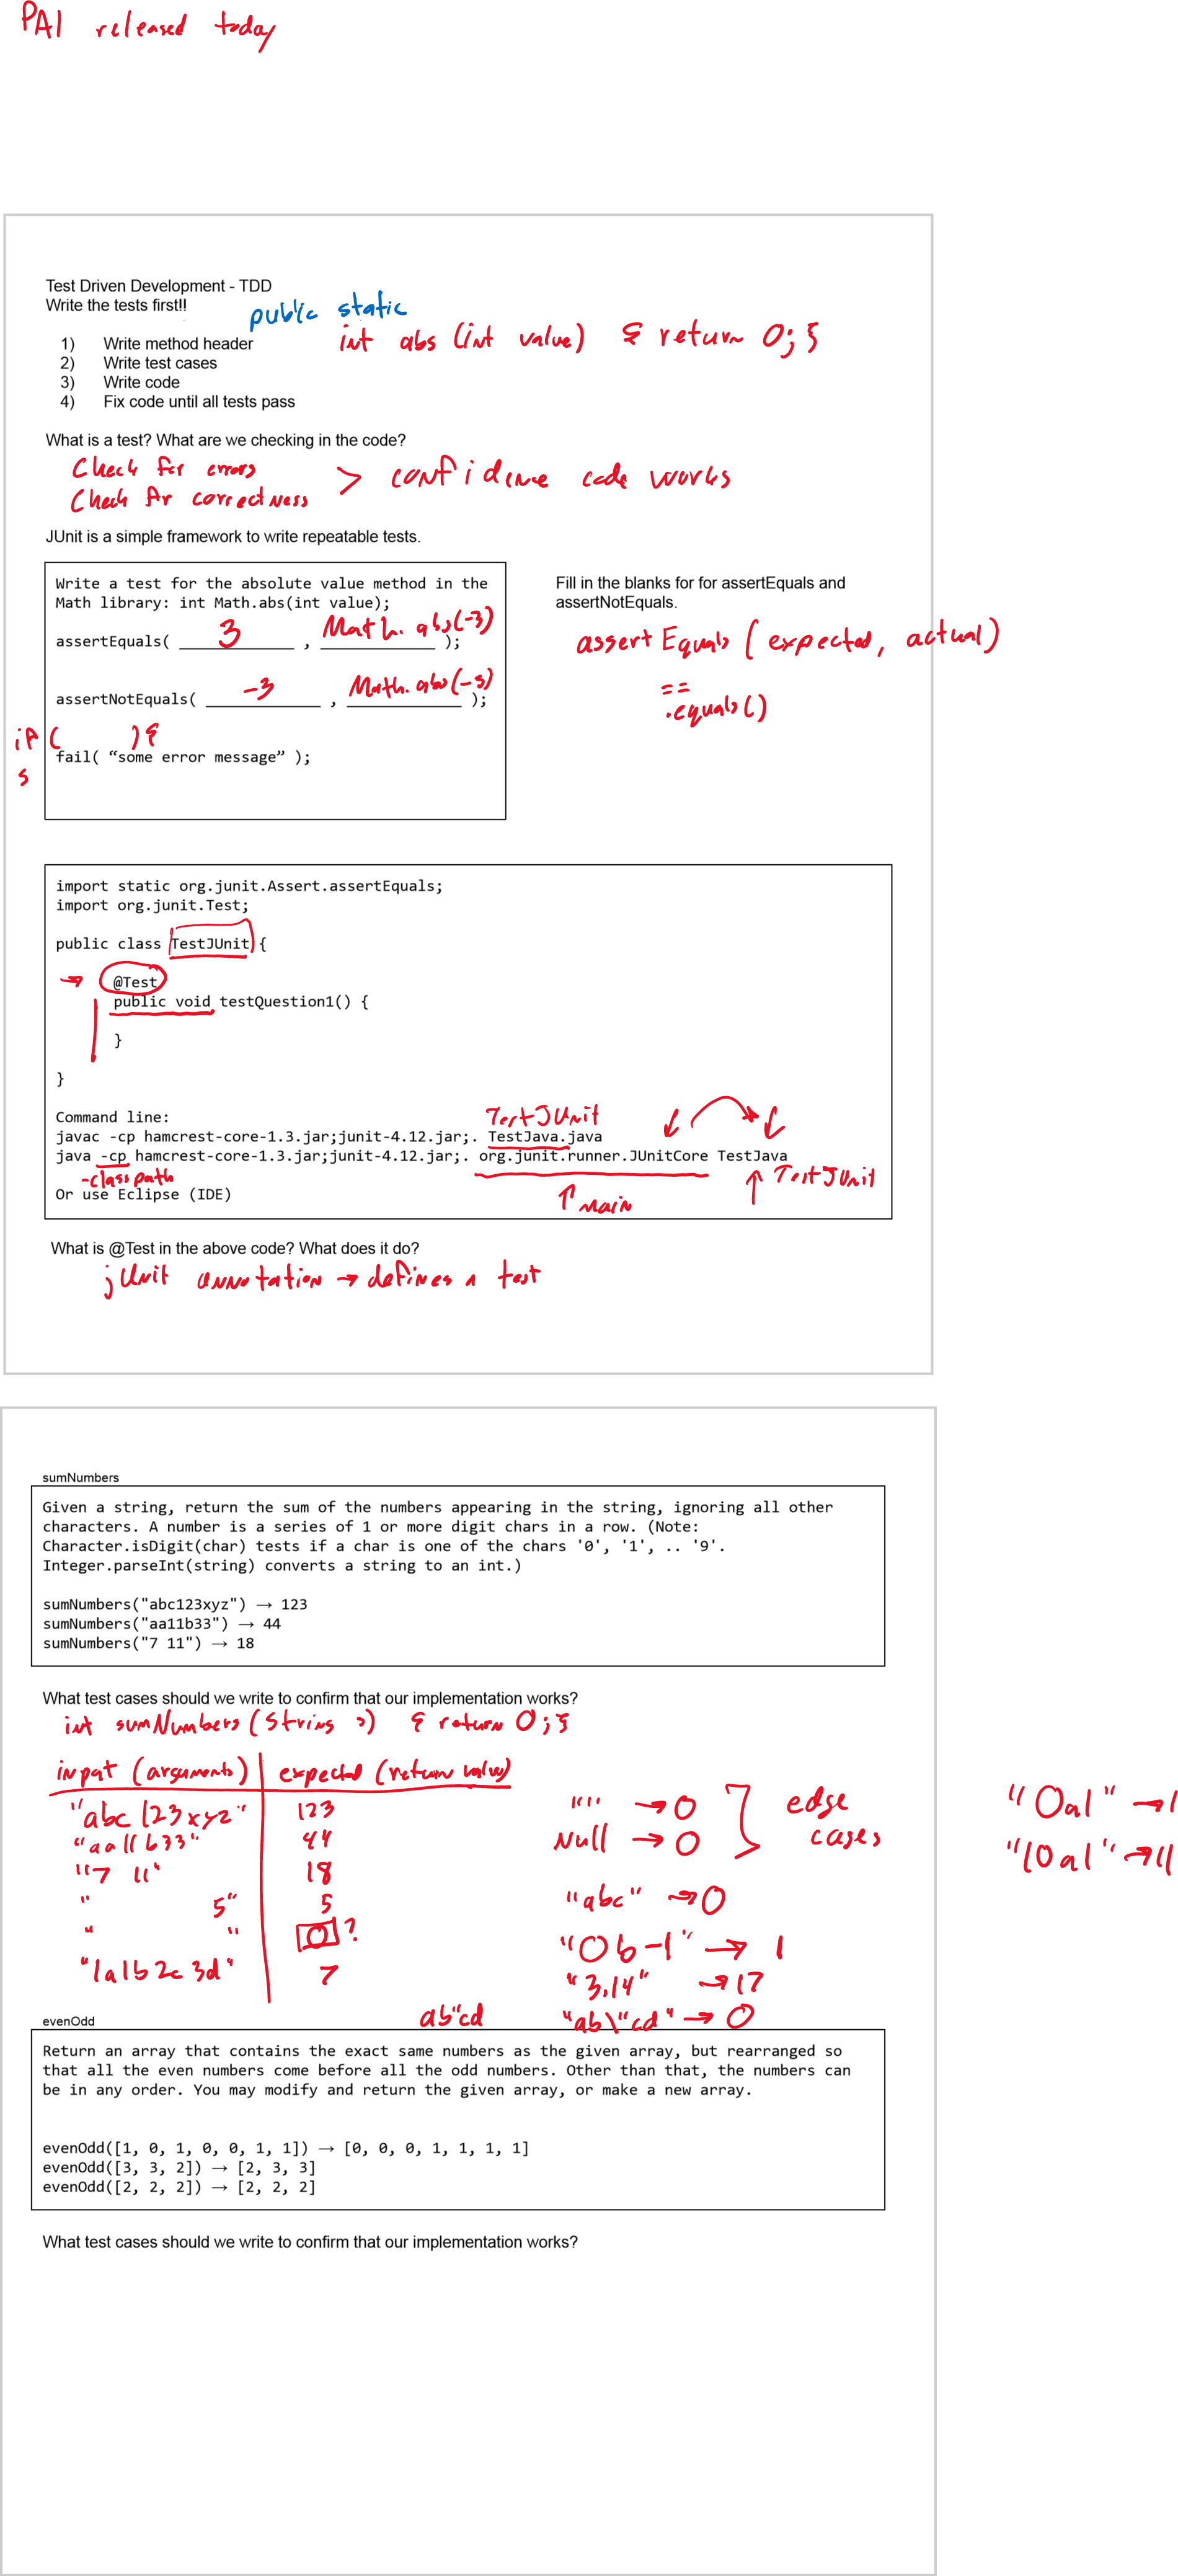 PA1 released today
Test Driven Development - TDD
Write the tests first!!
public static
1) Write method header
int abs (int value) { return 0; }
2) Write test cases
3) Write code
4) Fix code until all tests pass
What is a test? What are we checking in the code?
Check for errors
Check for correctness
> confidence code works
JUnit is a simple framework to write repeatable tests.
Write a test for the absolute value method in the
Math library: int Math.abs(int value);
assertEquals( 3 , Math.abs(-3) );
assertNotEquals( -3 , Math.abs(-3) );
if ( ) {
fail( “some error message” );
}
Fill in the blanks for for assertEquals and
assertNotEquals.
assertEquals (expected, actual)
==
.equals()
import static org.junit.Assert.assertEquals;
import org.junit.Test;
public class TestJUnit {
→ @Test
public void testQuestion1() {
}
}
Command line:
TestJUnit
javac -cp hamcrest-core-1.3.jar;junit-4.12.jar;. TestJava.java
java -cp hamcrest-core-1.3.jar;junit-4.12.jar;. org.junit.runner.JUnitCore TestJava
-classpath
↑ main
↑ TestJUnit
Or use Eclipse (IDE)
What is @Test in the above code? What does it do?
jUnit annotation → defines a test
sumNumbers
Given a string, return the sum of the numbers appearing in the string, ignoring all other
characters. A number is a series of 1 or more digit chars in a row. (Note:
Character.isDigit(char) tests if a char is one of the chars '0', '1', .. '9'.
Integer.parseInt(string) converts a string to an int.)
sumNumbers("abc123xyz") → 123
sumNumbers("aa11b33") → 44
sumNumbers("7 11") → 18
What test cases should we write to confirm that our implementation works?
int sumNumbers (String s) { return 0; }
input (arguments) expected (return value)
"abc123xyz" 123
"aa11b33" 44
"7 11" 18
" 5" 5
" " 0 ?
"1a1b2c3d" 7
"" → 0
Null → 0
edge
cases
"abc" → 0
"0b-1" → 1
"3.14" → 17
ab"cd "ab\"cd" → 0
"0a1" → 1
"10a1" → 11
evenOdd
Return an array that contains the exact same numbers as the given array, but rearranged so
that all the even numbers come before all the odd numbers. Other than that, the numbers can
be in any order. You may modify and return the given array, or make a new array.
evenOdd([1, 0, 1, 0, 0, 1, 1]) → [0, 0, 0, 1, 1, 1, 1]
evenOdd([3, 3, 2]) → [2, 3, 3]
evenOdd([2, 2, 2]) → [2, 2, 2]
What test cases should we write to confirm that our implementation works?